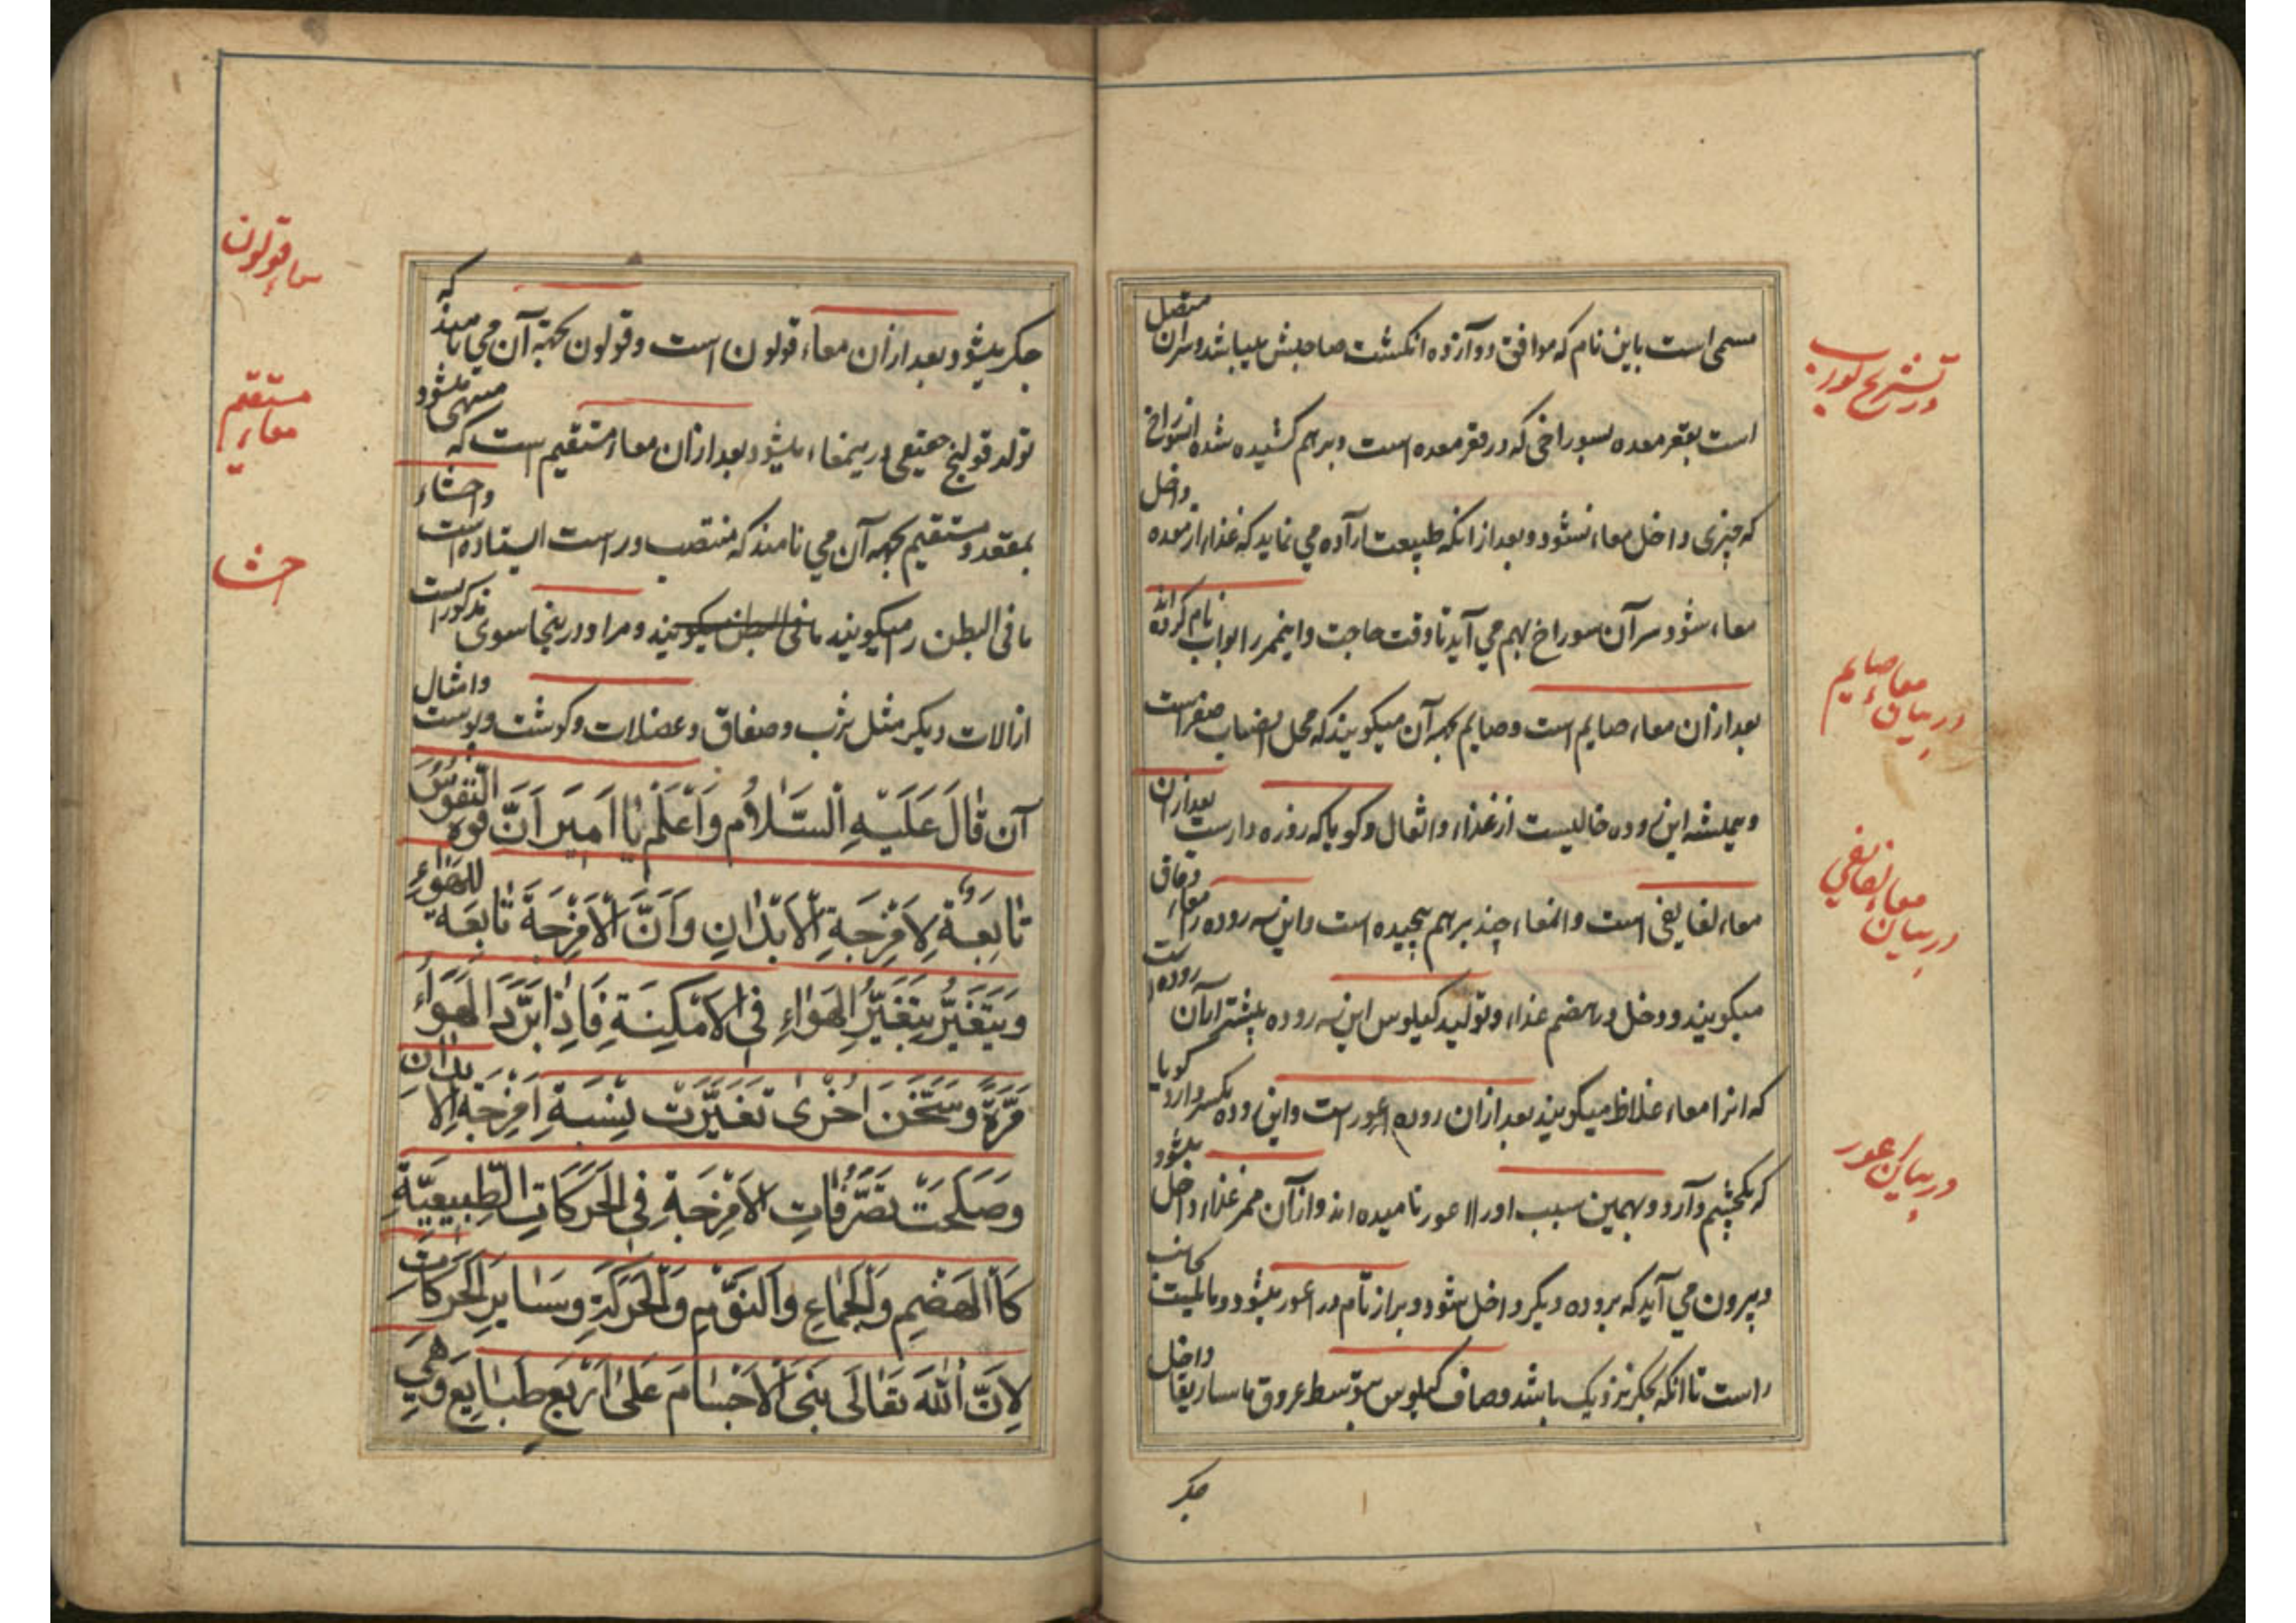 مسمی است باین نام که موافق دوآزده انکشت صاحبش میباشد و سران متصل
است بقعر معده بسوراخی که در قعر معده است و برهم کشیده شده
که چیزی داخل معاء نشود و بعد از انکه طبیعت اراده می نماید که غذا از معده داخل
معاء شود سر آن سوراخ بهم می آید تا وقت حاجت و اینممر را بواب نام کرده اند
بعد از آن معاء صایم است و صایم بجهة آن میکویند که محل انصباب صفر است
و همیشه این روده خالیست از غذا و اثفال و کویا که روزه دارست بعد از آن
معاء لفایفی است و انمعاء چند برهم پیچیده است و این سه روده را معاء دقاق
میکویند و دخل در هضم غذا و تولید کیلوس این سه روده بیشتر از آن روده است
که انرا معاء غلاظ میکویند بعد از ان روده اعور است و این روده یکسر دارد کویا
که یکچشم دآرد و بهمین سبب او را اعور نامیده اند و از آن ممر غذا داخل میشود
و بیرون می آید که بروده دیکر داخل شود و براز تمام در اعور میشود و مایلست بجانب
راست تا انکه بجکر نزدیک باشد و صاف کیلوس بتوسط عروق ماساریقا داخل
جکر
در تشریح
در بیان معاء صایم
در بیان معاء لفایفی
در بیان اعور
جکر میشود و بعد از آن معاء قولون است و قولون بجهة آن می نامند که
تولد قولنج حقیقی در ینمعاء میشود و بعد از ان معاء مستقیم است که منتهی میشود
بمقعد و مستقیم بجهة آن می نامند که منتصب و راست ایستاده است و احشاء
ما فی البطن را میکویند ما فی البطن میکویند و مراد در ینجا سوی مذکور است
از الات دیکر مثل ثرب و صفاق و عضلات و کوشت و پوست و امثال
آن قَالَ عَلَيْهِ السَّلَامُ وَاعْلَمْ يَا اَمِيَر اَنَّ قُوَة النُّفُوسِ
تَابِعَةٌ لِاَمْزِجَةِ الْاَبْدَانِ وَاَنَّ الْاَمْزِجَةَ تَابِعَة لِلْهَوَاءِ
وَيَتَغَيَّرُ بِتَغَيُّرِ الهَوَاءِ فِي الاَمْكِنَةِ فَاِذَا بَرَّدَ الهَوَاءُ
مَرَّةً وَسَخَّنَ اُخْرٰى تَغَيَّرَت بِسَبَةِ اَمْزِجَةِ الاَبْدَان
وَصَلَحَتْ تَصَرُّفَاتِ الاَمْزِجَةِ فِي الحَرَكَاتِ الطَّبِيعِيَّةِ
كَاالهَضْمِ وَالْجِمَاعِ وَالنَوْمِ وَالْحَرَكَةِ وَسَايِرِ الحَرَكَات
لِاَنَّ اللّٰهَ تَعَالَى بَنَى الاَجْسَامَ عَلَى اَرْبَعِ طَبَايِعَ وَهِيَ
معاء قولون
معاء مستقیم
احشا